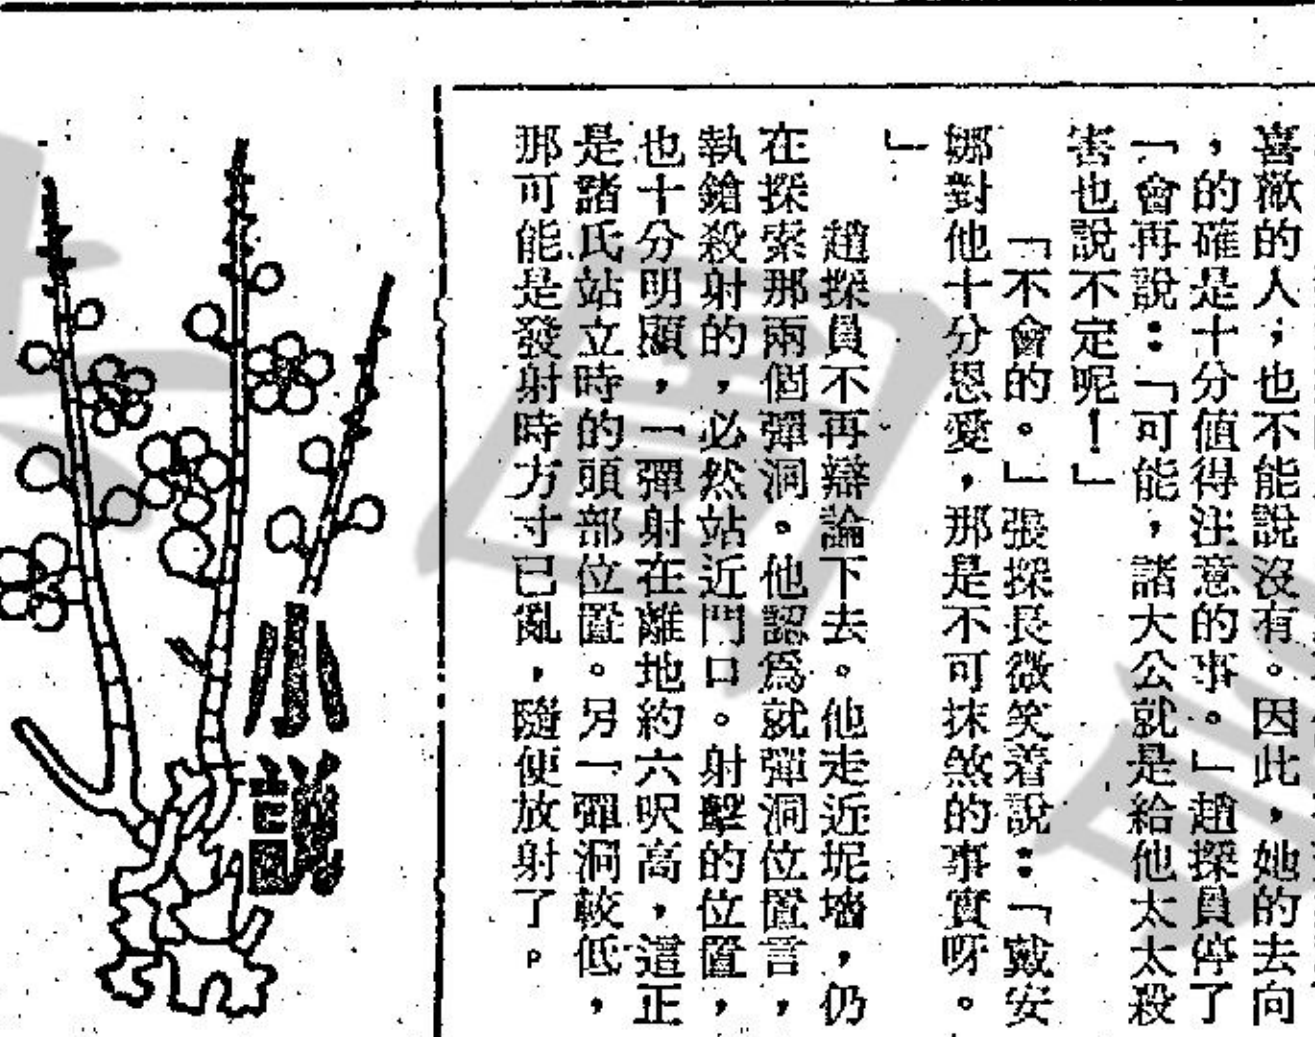 喜歡的人，也不能說沒有。因此，她的去向
，的確是十分值得注意的事。」趙探員停了
一會再說：「可能，諸大公就是給他太太殺
害也說不定呢！」
「不會的。」張探長微笑着說：「戴安
娜對他十分恩愛，那是不可抹煞的事實呀。
」
趙探員不再辯論下去。他走近坭墻，仍
在探索那兩個彈洞。他認爲就彈洞位置言，
執鎗殺射的，必然站近門口。射擊的位置，
也十分明顯，一彈射在離地約六呎高，這正
是諸氏站立時的頭部位置。另一彈洞較低，
那可能是發射時方寸已亂，隨便放射了。
小說